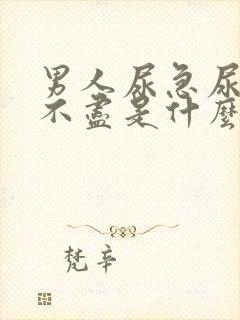 男人尿急尿
不盡是什麼
梵辛